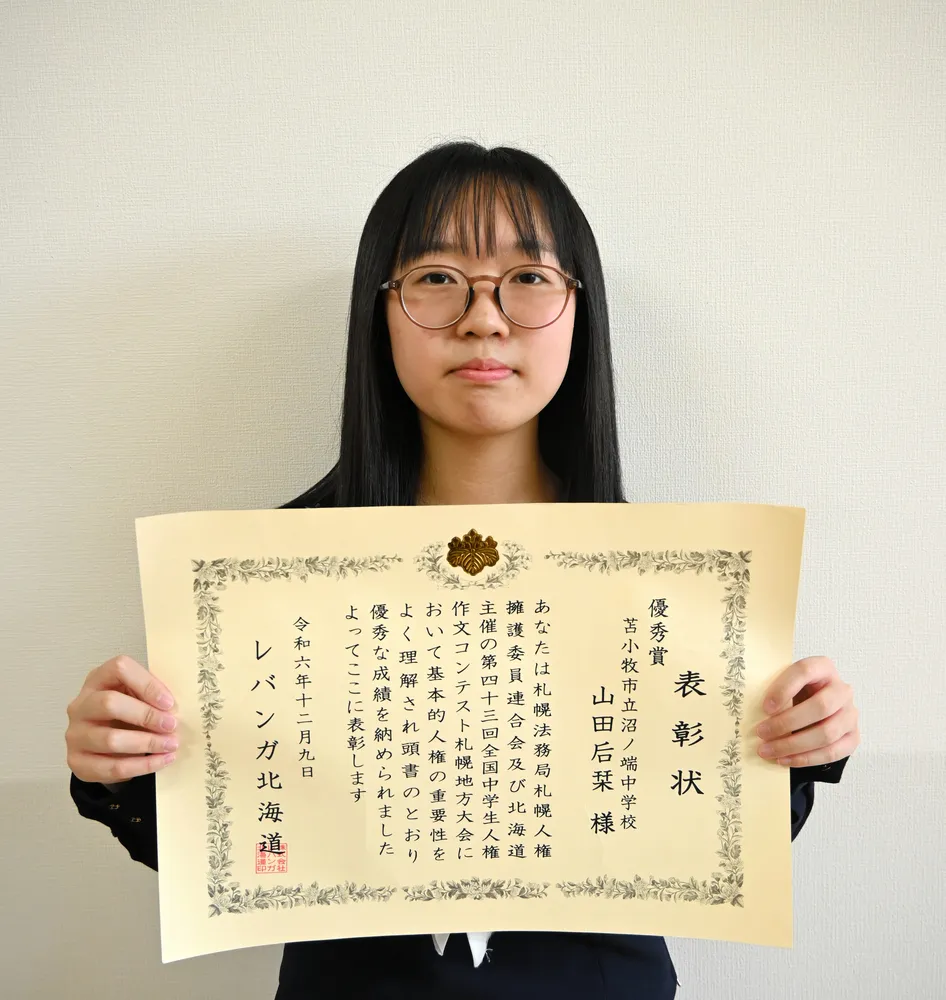 表彰状
優秀賞
苫小牧市立沼ノ端中学校
山田后栞 様
あなたは札幌法務局札幌人権
擁護委員連合会及び北海道
主催の第四十三回全国中学生人権
作文コンテスト札幌地方大会に
おいて基本的人権の重要性を
よく理解され頭書のとおり
優秀な成績を納められました
よってここに表彰します
令和六年十二月九日
レバンガ北海道